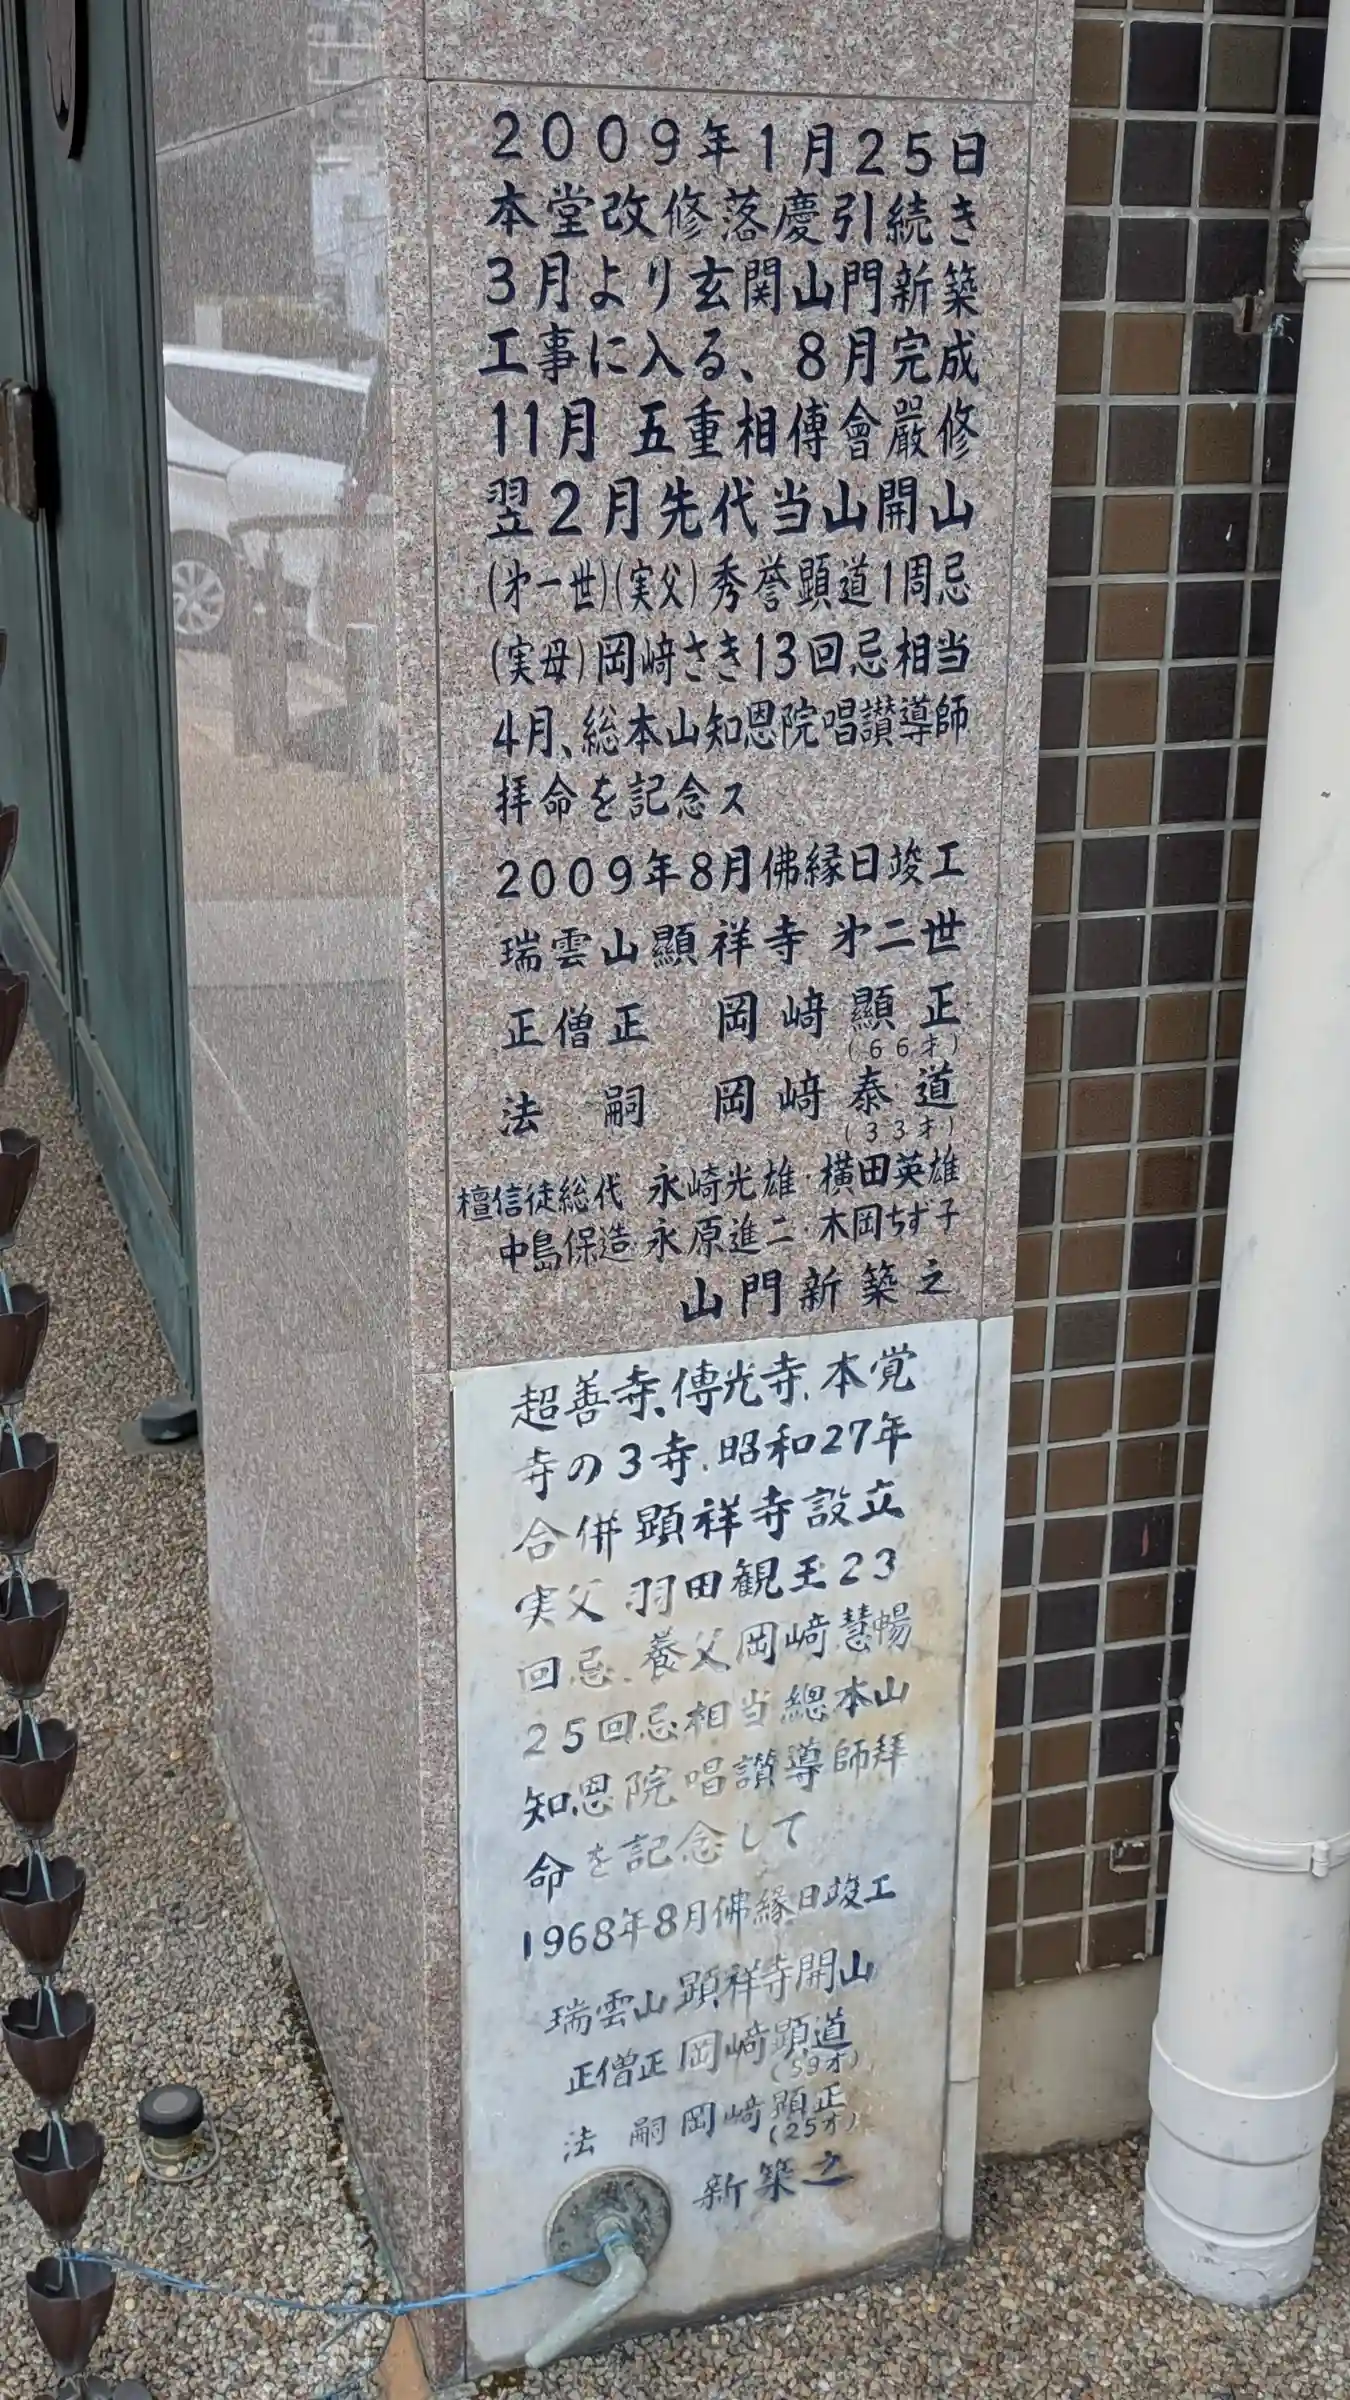 2009年1月25日
本堂改修落慶引続き
3月より玄関山門新築
工事に入る、8月完成
11月 五重相傳會厳修
翌2月先代当山開山
(㐧一世)(実父)秀誉顕道1周忌
(実母)岡﨑さき13回忌相当
4月、総本山知恩院唱讃導師
拝命を記念ス
2009年8月佛縁日竣工
瑞雲山顯祥寺 㐧二世
正僧正 岡﨑顯正
(66才)
法嗣 岡﨑泰道
(33才)
檀信徒総代 永崎光雄・横田英雄
中島保造・永原進二・木岡ちず子
山門新築之
超善寺、傳光寺、本覚
寺の3寺、昭和27年
合併顕祥寺設立
実父 羽田観玉23
回忌、養父岡﨑慧暢
25回忌相当總本山
知恩院唱讃導師拜
命を記念して
1968年8月佛縁日竣工
瑞雲山顕祥寺開山
正僧正岡﨑顕道
(59才)
法嗣岡﨑顕正
(25才)
新築之